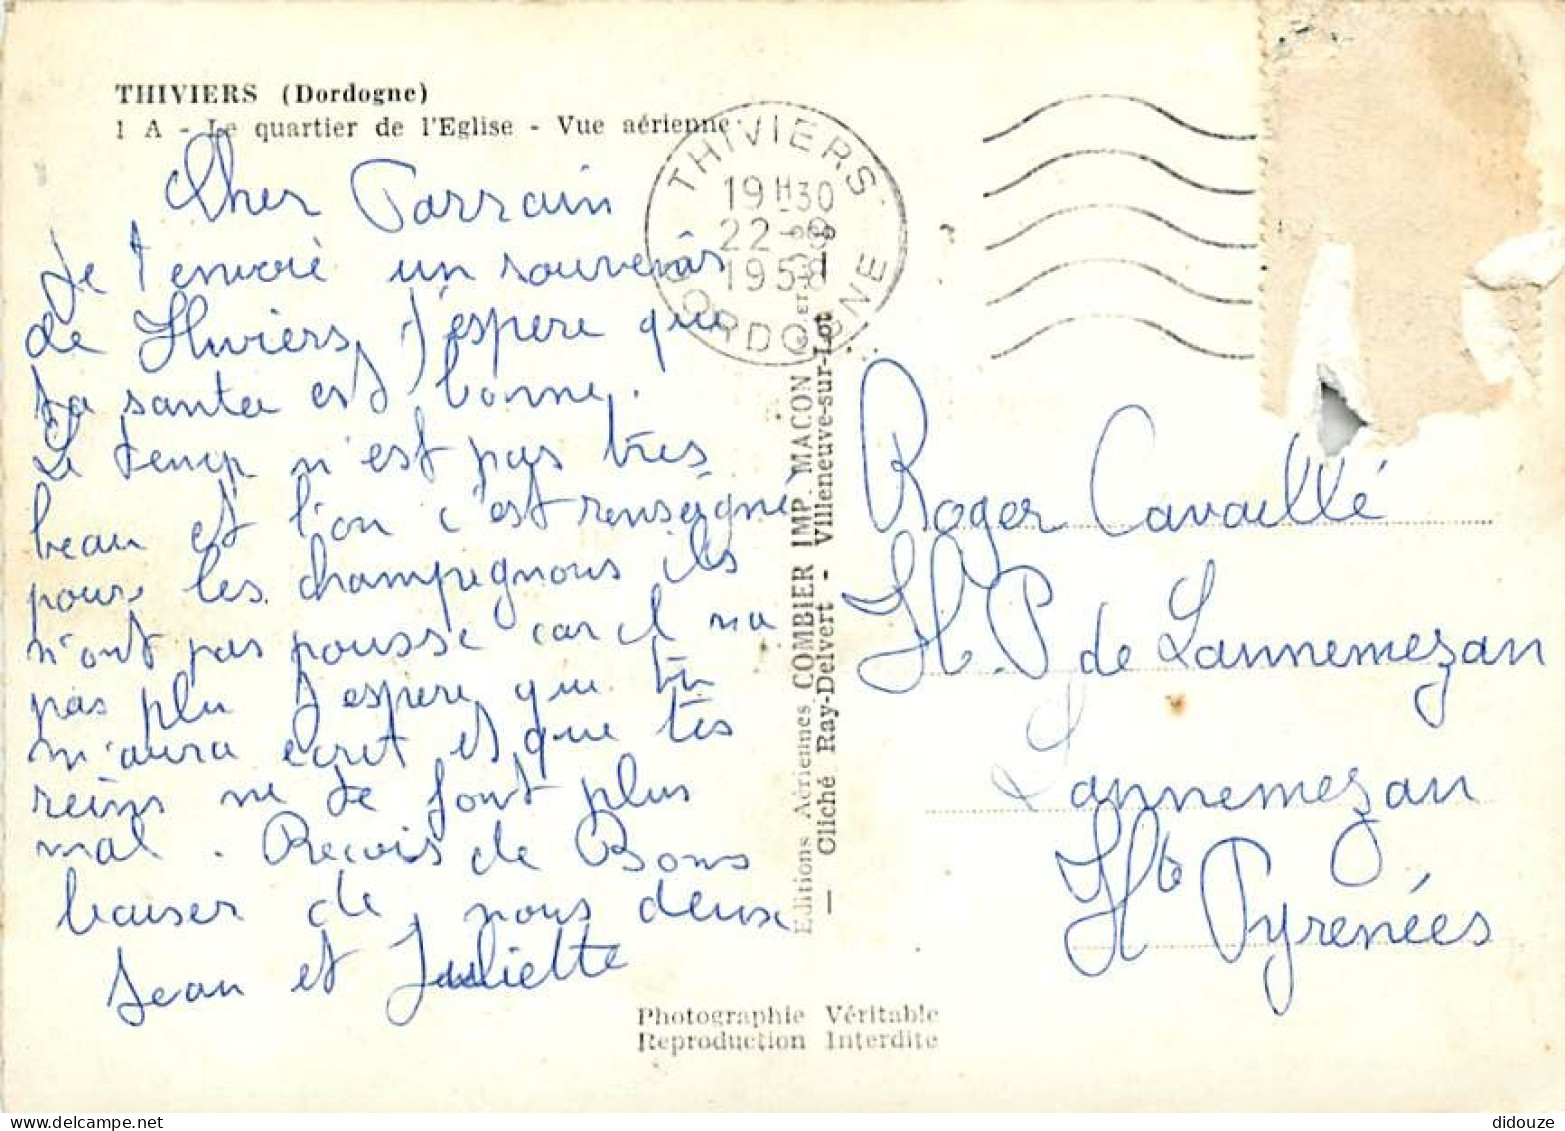 THIVIERS (Dordogne)
1 A - Le quartier de l'Eglise - Vue aérienne
Cher Parrain
Je t'envoie un souvenir
de Thiviers, J'espere que
ta santee est bonne.
Le temp n'est pas très
beau et l'on c'est renseigné
pour les champignons ils
n'ont pas pousse car il na
pas plu J'espere que tu
m'aura ecrit et que tes
reins ne te font plus
mal. Recois de Bons
baiser de nous deux
Jean et Juliette
THIVIERS
19H30
22-
1958
DORDOGNE
Editions Aériennes COMBIER IMP. MACON
— Cliché Ray-Delvert - Villeneuve-sur-Lot
Roger Cavaillé
H.P de Lannemezan
Lannemezan
Hte Pyrenées
Photographie Véritable
Reproduction Interdite
didouze